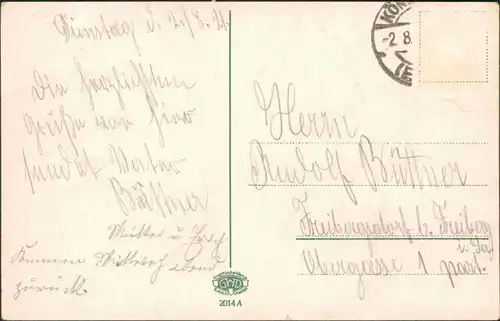 Dienstag d. 2./8. 21.
Die herzlichsten
Grüße von hier
sendet Vater
Büttner
Mutter u. 
kommen Mittwoch Abend
zurück.
KÖN
-2.8.
Herrn
Rudolf Büttner
Freibergsdorf b. Freiberg
i. Sa.
Obergasse 1 part.
2014 A